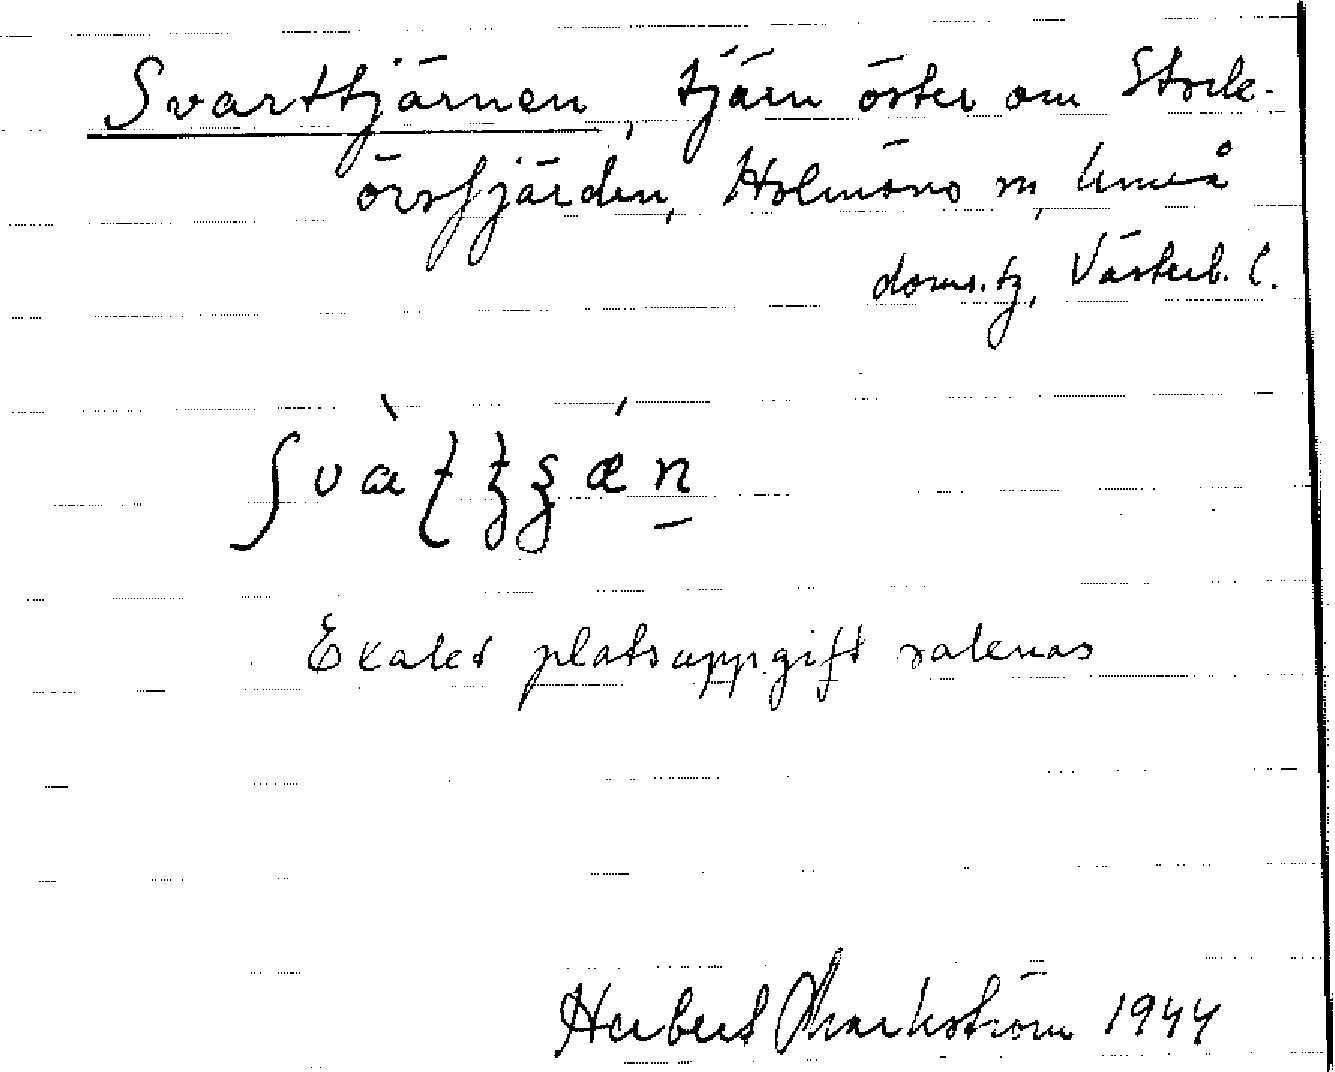 Svarttjärnen, tjärn öster om Stork-
örsfjärden, Holmöns sn, Umeå
doms. tg, Västerb. l.
Exakt platsuppgift saknas
Herbert Markström 1944